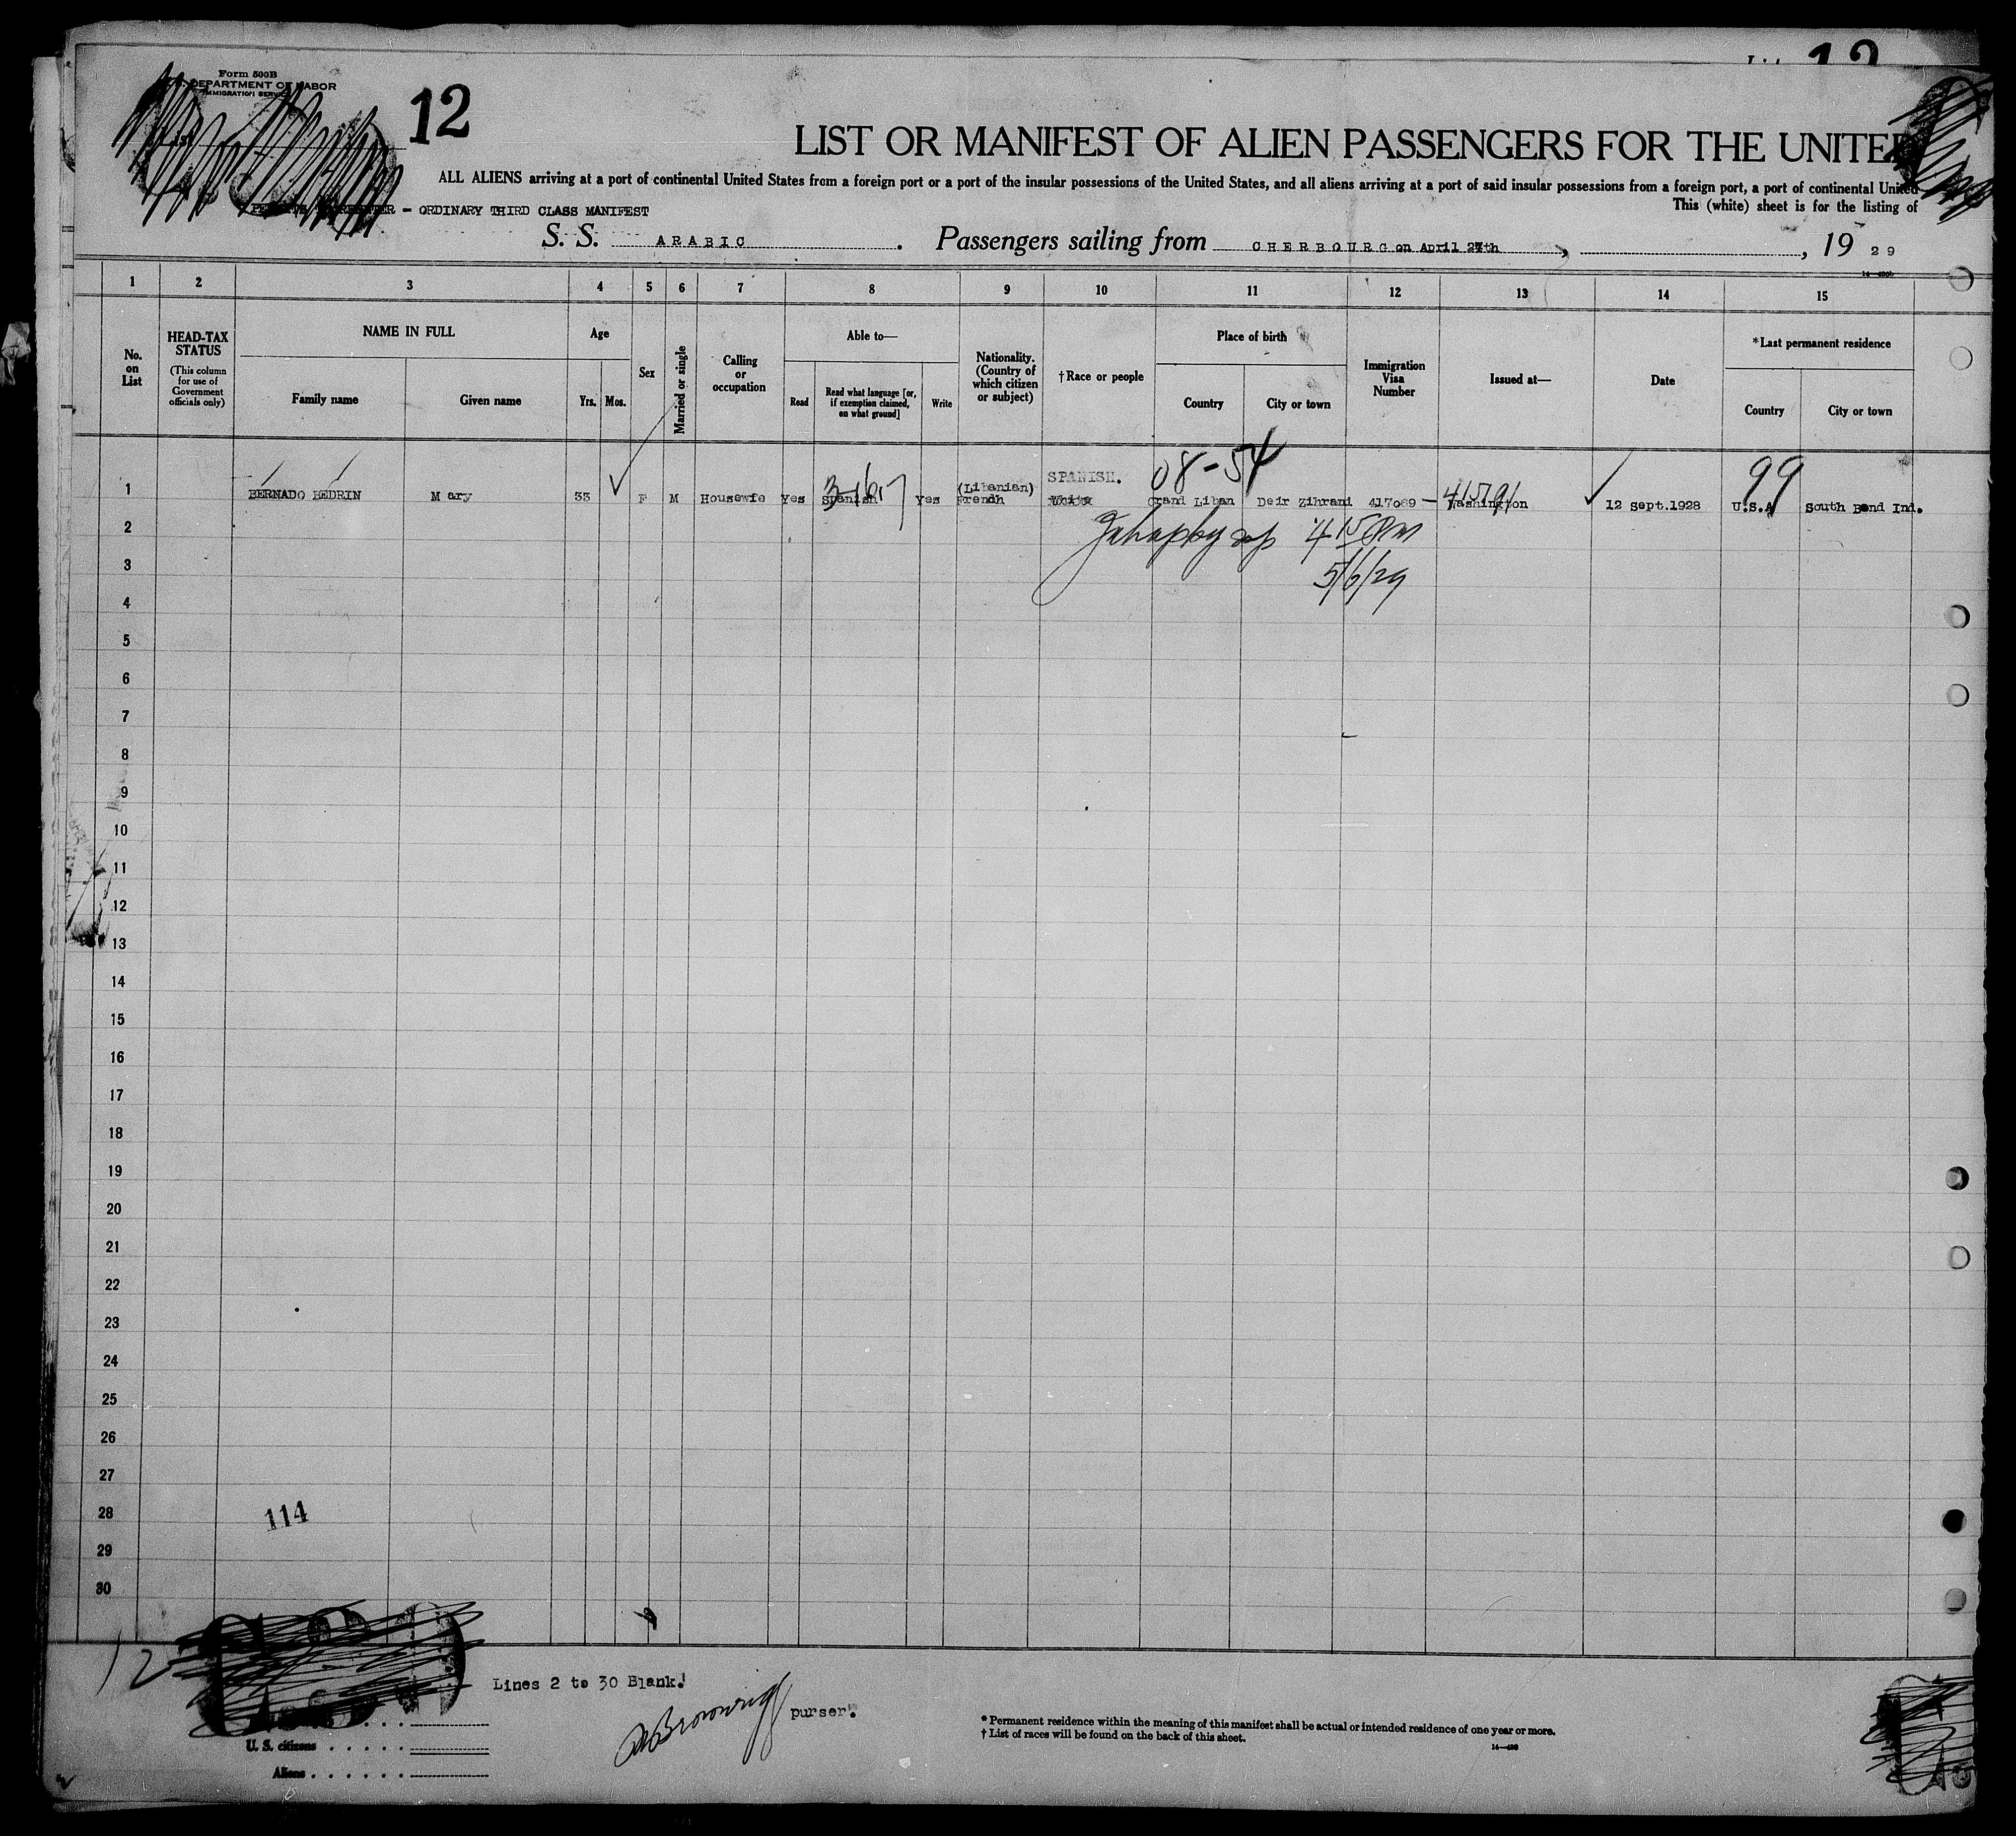 Form 500B
DEPARTMENT OF LABOR
IMMIGRATION SERVICE
12
12
LIST OR MANIFEST OF ALIEN PASSENGERS FOR THE UNITED
ALL ALIENS arriving at a port of continental United States from a foreign port or a port of the insular possessions of the United States, and all aliens arriving at a port of said insular possessions from a foreign port, a port of continental United
- ORDINARY THIRD CLASS MANIFEST
This (white) sheet is for the listing of
S. S. ARABIC. Passengers sailing from CHERBOURG on April 27th, , 19 29
1 2 3 4 5 6 7 8 9 10 11 12 13 14 15
No. on List
HEAD-TAX STATUS
(This column for use of Government officials only)
NAME IN FULL
Family name
Given name
Age
Yrs.
Mos.
Sex
Married or single
Calling or occupation
Able to—
Read
Read what language [or, if exemption claimed, on what ground]
Write
Nationality. (Country of which citizen or subject)
†Race or people
Place of birth
Country
City or town
Immigration Visa Number
Issued at—
Date
*Last permanent residence
Country
City or town
SPANISH. 08-54 99
(Libanian)
1 BERNADO BEDRIN Mary 33 F M Housewife Yes Spanish Yes French White Grand Liban Deir Zihrani 417069 - Washington 12 Sept.1928 U.S.A South Bend Ind.
2 4 15 PM
3 5/6/29
4
5
6
7
8
9
10
11
12
13
14
15
16
17
18
19
20
21
22
23
24
25
26
27
28 114
29
30
12
Lines 2 to 30 Blank.
Browning purser.
U. S. citizens
Aliens
* Permanent residence within the meaning of this manifest shall be actual or intended residence of one year or more.
† List of races will be found on the back of this sheet.